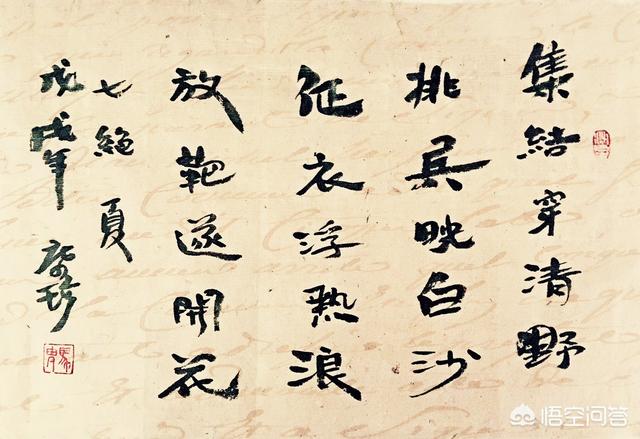 集結穿清野
挑兵映白沙
征衣浮热浪
放靶遂開花
七絕 夏
戊戌年
悟空问答